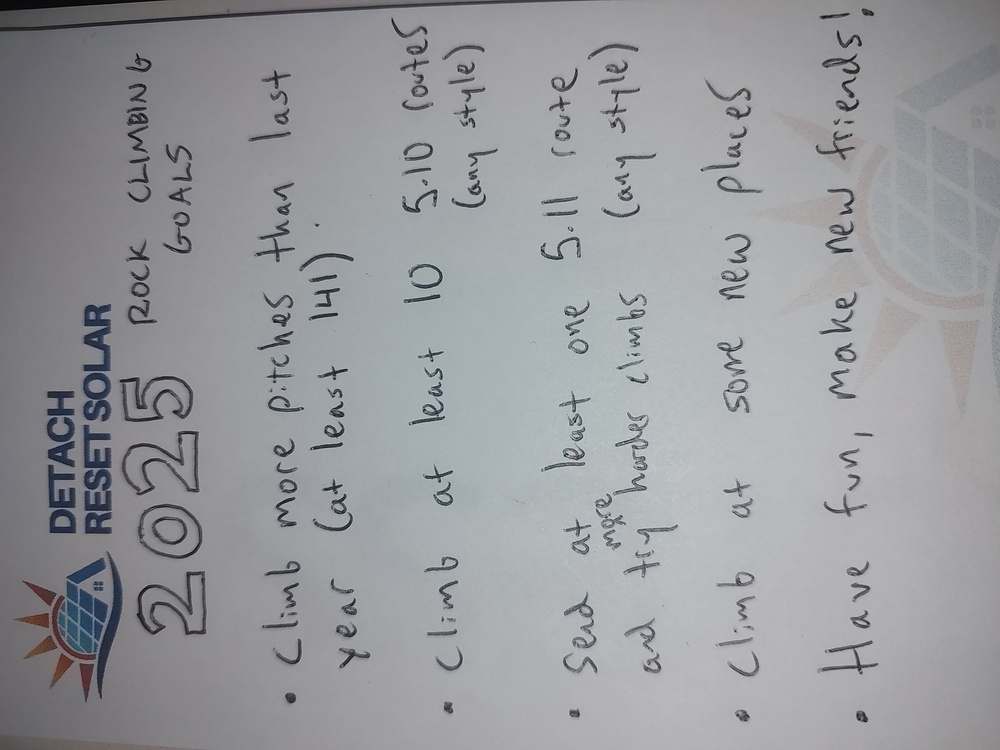 DETACH
RESET SOLAR
2025 ROCK CLIMBING
GOALS
• Climb more pitches than last
year (at least 141).
• Climb at least 10 5.10 routes
(any style)
• Send at least one 5.11 route
and try more harder climbs (any style)
• Climb at some new places
• Have fun, make new friends!